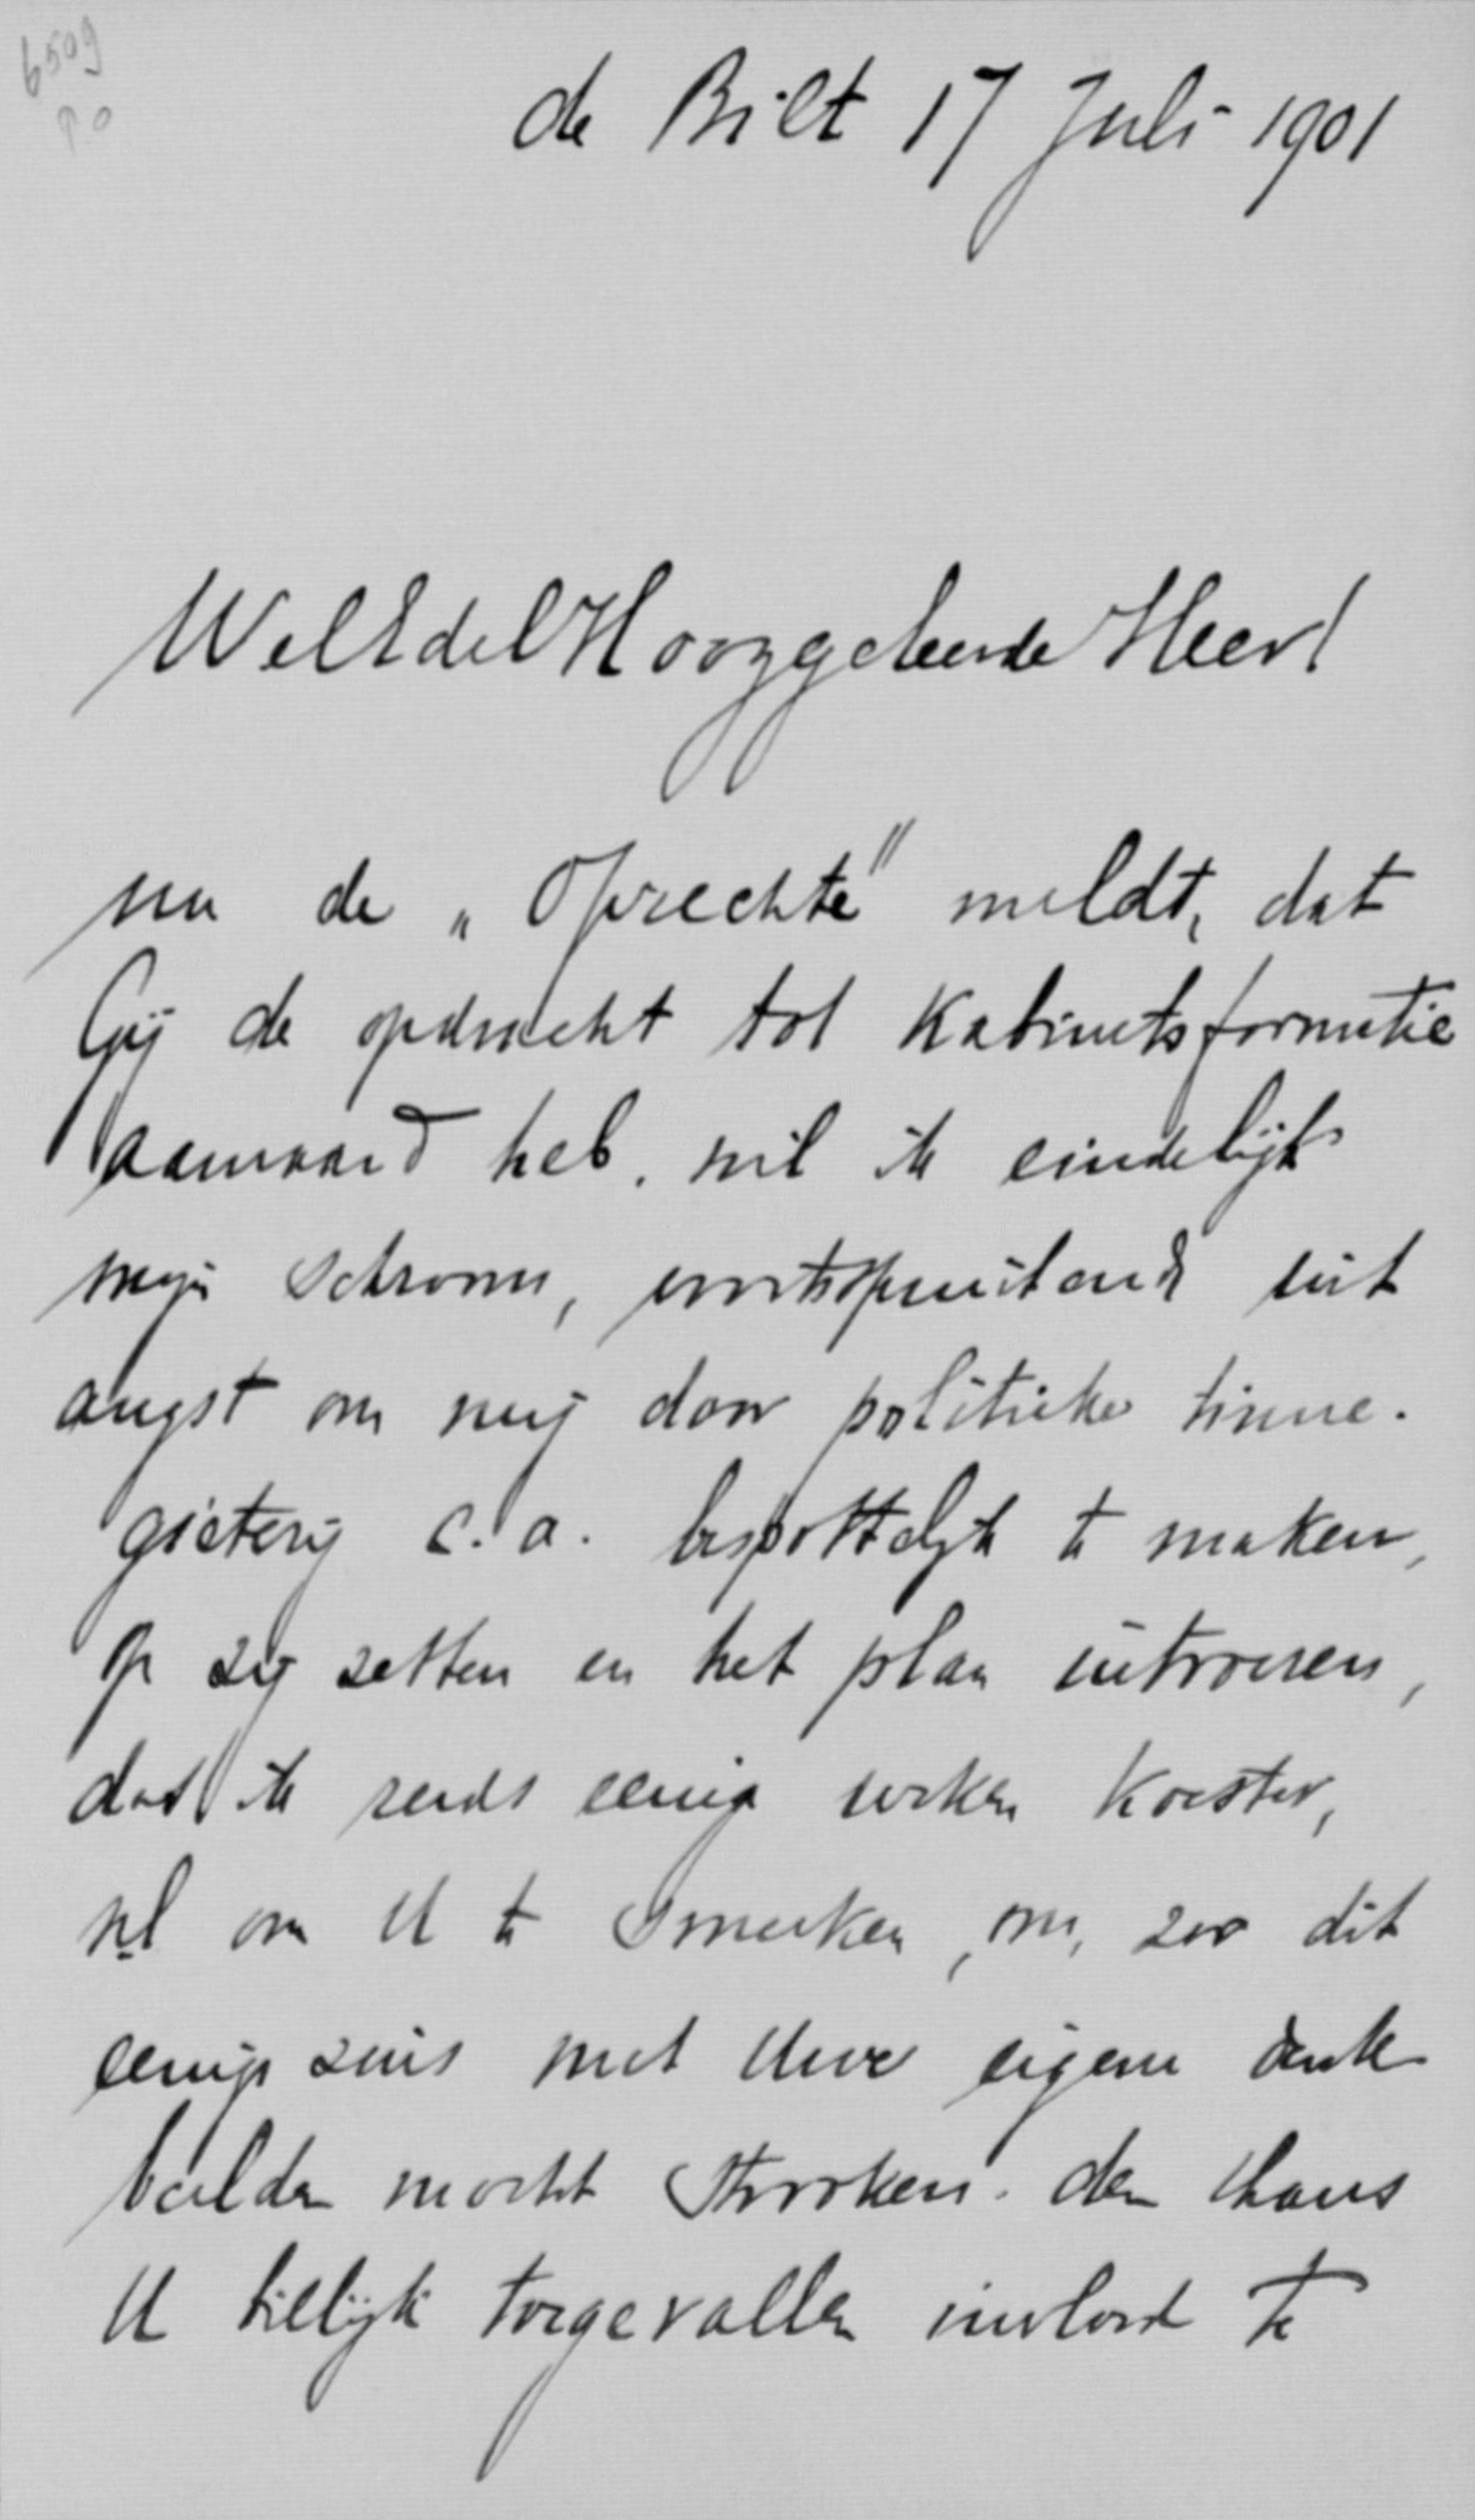 6509
P0
de Bilt 17 Juli 1901
WelEdelHooggeleerde Heer!
nu de „Oprechte" meldt, dat
Gij de opdracht tot Kabinetsformatie
aanvaard heb, wil ik eindelijk
mijn schroom, voortspruitend uit
angst om mij door politieke tinne-
gieterij c.a. bespottelijk te maken,
op zij zetten en het plan uitvoeren,
dat ik reeds eenige weken koester,
nl om U te smeeken, om, zoo dit
eenigszins met Uwe eigene denk
beelden mocht strooken. den thans
U billijk toegevallen invloed te